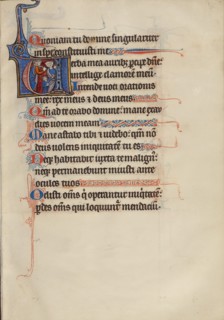 Quoniam tu domine singulariter
in spe constituisti me
Verba mea auribz percipe dñe:
intellige clamorē meū.
Intende uoci orationis
mee: rex meus ⁊ deus meus.
Qm̄ ad te orabo domine: mane exau
dies uocem meam
Mane astabo tibi ⁊ uidebo: qm̄ nō
deus uolens iniquitatē tu es.
Neqz habitabit iuxta te malign9:
neqz permanebunt iniusti ante
oculos tuos.
Odisti om̄s q̄ operantur iniq̄tatē:
ꝑdes om̄s qui loquunt᷑ mendaciū.